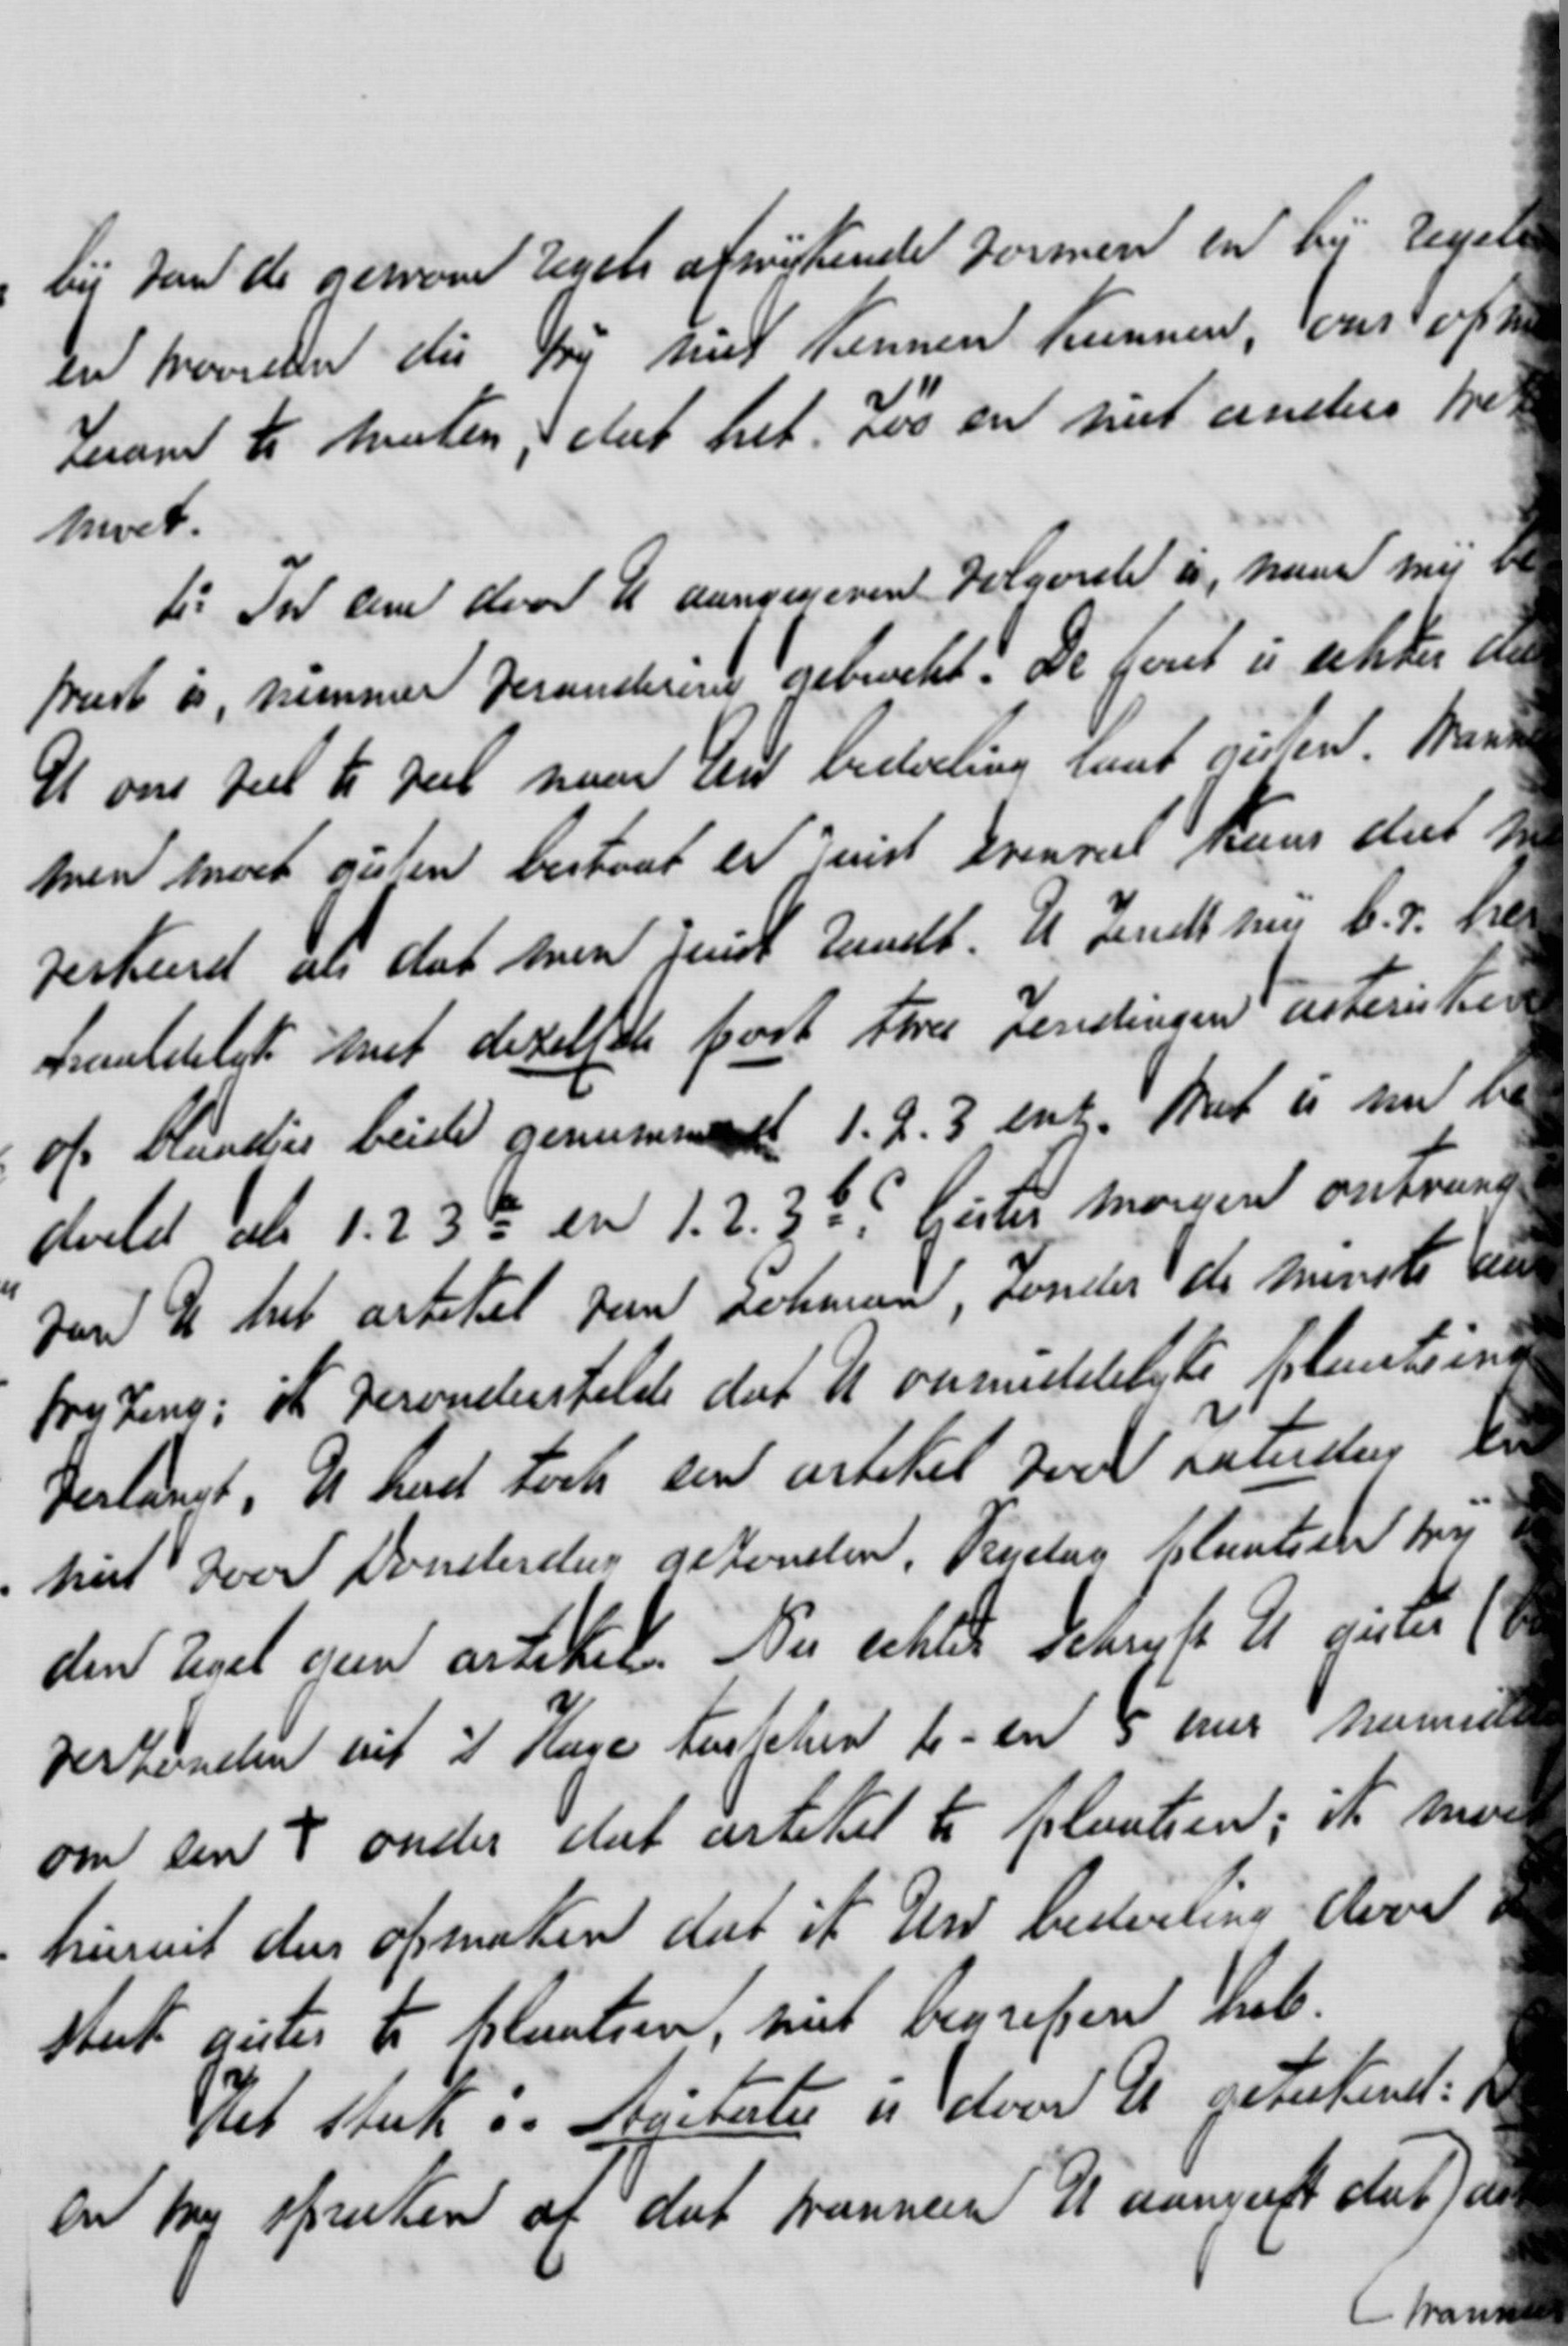 bij van de gewone regels afwijkende vormen en bij regels
en woorden die wij niet kennen kunnen, ons opm
zaam te maken, dat het "zóó" en niet anders we
moet.
4º In den door U aangegeven volgorde is, naar mij be
wust is, nimmer verandering gebracht. De fout is echter da
U ons veel te veel naar Uw bedoeling laat gissen. Wann
men moet gissen bestaat er juist evenveel kans dat m
verkeerd als dat men juist raadt. U zendt mij b.v. her
haaldelijk met dezelfde post twee zendingen asterisken
op blaadjes beide genummerd 1. 2. 3 enz. Wat is nu be
doeld als 1. 2 3 a en 1. 2. 3 b? Gister morgen ontvang
van U het artikel van Lohman, zonder de minste aan
wijzing; ik veronderstelde dat U onmiddelijke plaatsing
verlangt, U had toch een artikel voor Zaterdag en
niet voor Donderdag gezonden. Vrijdag plaatsen wij
den regel geen artikel. Nu echter schrijft U gister (
verzonden uit 's Hage tusschen 4 - en 5 uur namidd
om een † onder dat artikel te plaatsen; ik moet
hieruit dus opmaken dat ik Uw bedoeling door
stuk gister te plaatsen, niet begrepen heb.
Het stuk i. Agitatie is door U geteekend:
en wij spraken af dat wanneer U aangeeft dat
wanneer